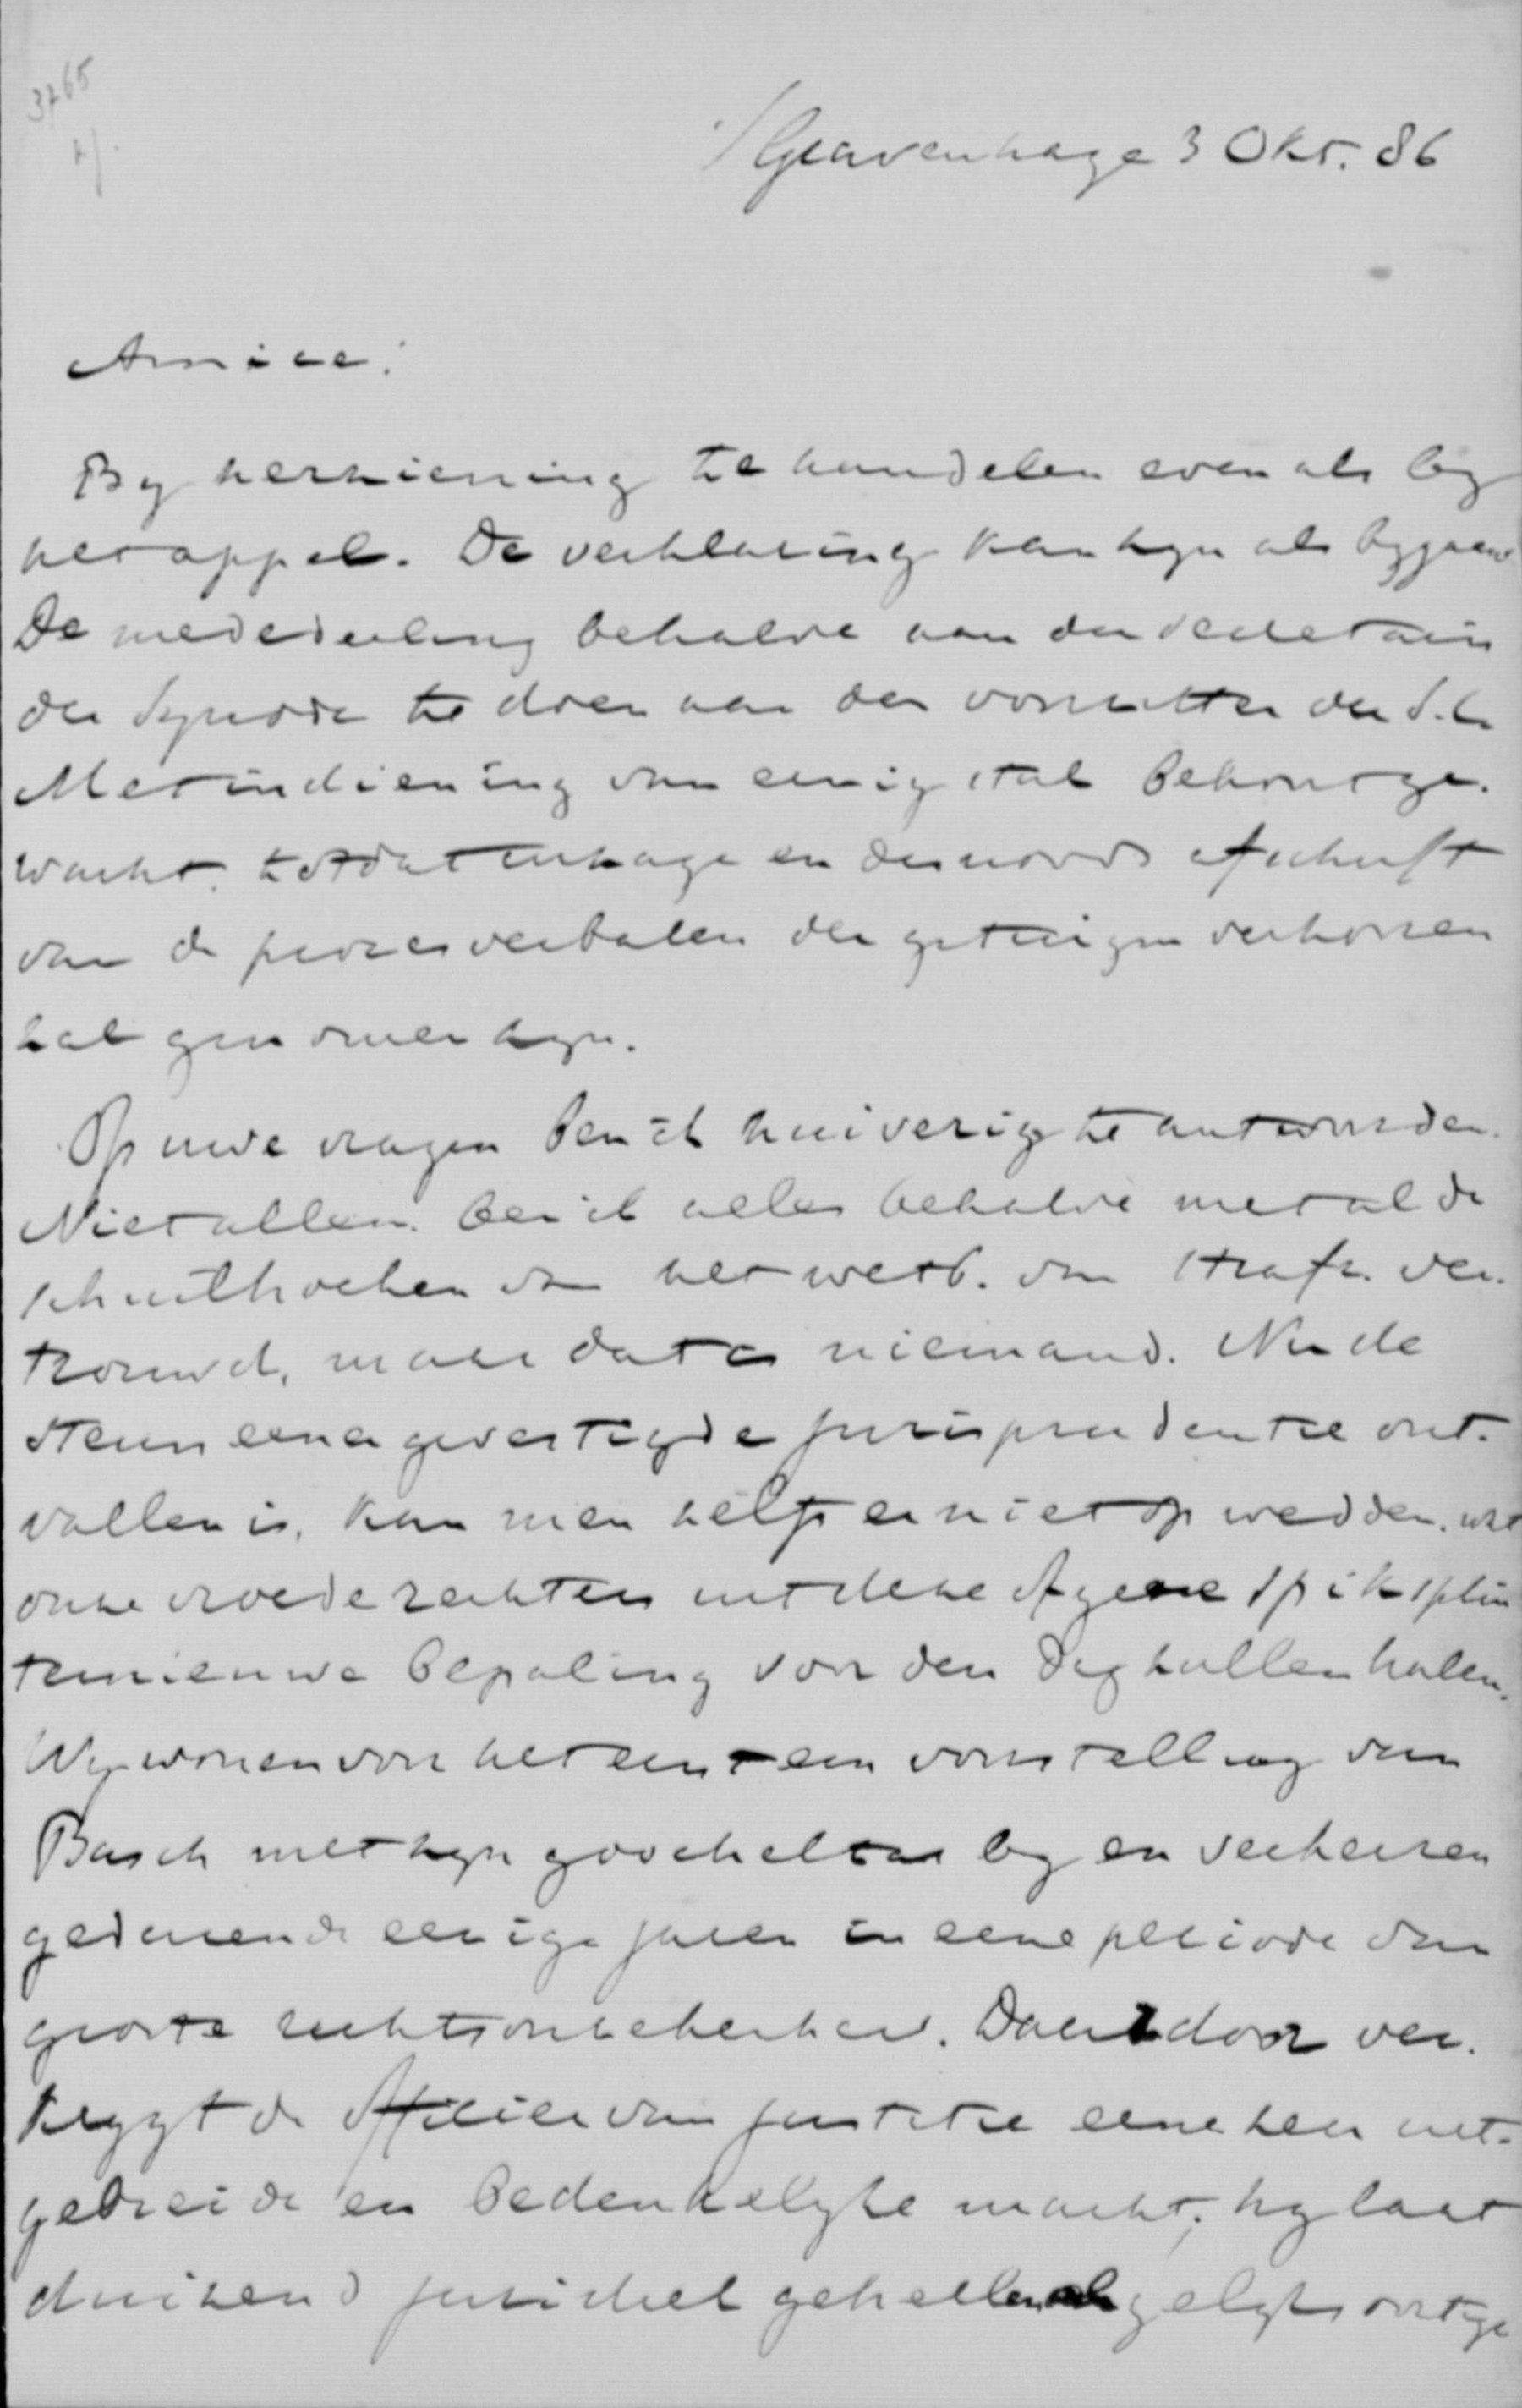 3765
'sGravenhage 3 Okt. 86
Amice!
By herziening te handelen even als by
het appel. De verklaring kan zyn als bygaand
De mededeeling behalve aan den secretaris
der Synode te doen aan den voorzitter der S.C.
Met indiening van eenig stuk behoort ge-
wacht, totdat inzage en desnoods afschrift
van de processenverbalen der getuigenverhooren
zal genomen zyn.
Op uwe vragen ben ik huiverig te antwoorden.
Niet alleen ben ik alles behalve met al de
schuilhoeken van het wetb. van strafr. ver-
trouwd, maar dat is niemand. Nu de
steun eener gevestigde jurisprudentie ont-
vallen is, kan men zelfs er niet op wedden, wat
onze vroede rechters uit deze of gene spiksplin
ternieuwe bepaling voor den dag zullen halen.
Wy wonen voor het eerst een voorstelling van
Basch met zyn goocheltas by en verkeeren
gedurende eenige jaren in eene periode van
groote rechtsonzekerheid. Daardoor ver-
krygt de Officier van justitie eene zeer uit-
gebreide en bedenkelyke macht; hy laat
duizend juridiek geheel gelyksoortige